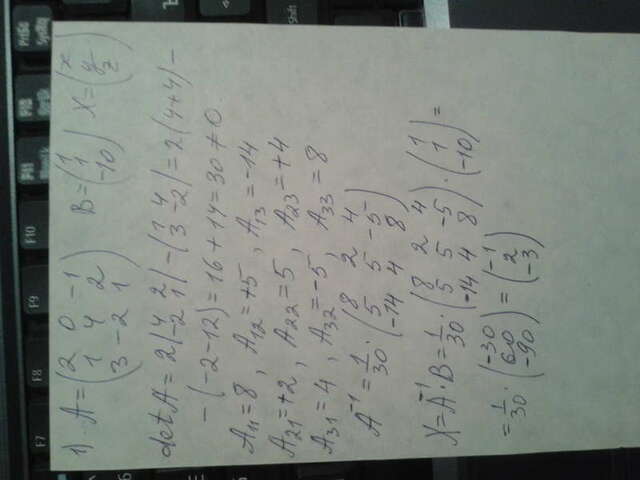 1) A = (2 0 -1
1 4 2
3 -2 1) B = (1
1
-10) X = (x
y
z)
det A = 2 |4 2
-2 1| - |1 4
3 -2| = 2(4+4) -
- (-2-12) = 16 + 14 = 30 ≠ 0.
A11 = 8, A12 = +5, A13 = -14
A21 = +2, A22 = 5, A23 = +4
A31 = 4, A32 = -5, A33 = 8
A^-1 = 1/30 · (8 2 4
5 5 -5
-14 4 8)
X = A^-1 · B = 1/30 · (8 2 4
5 5 -5
-14 4 8) · (1
1
-10) =
= 1/30 · (-30
60
-90) = (-1
2
-3)
F7
F8
F9
F10
Shift